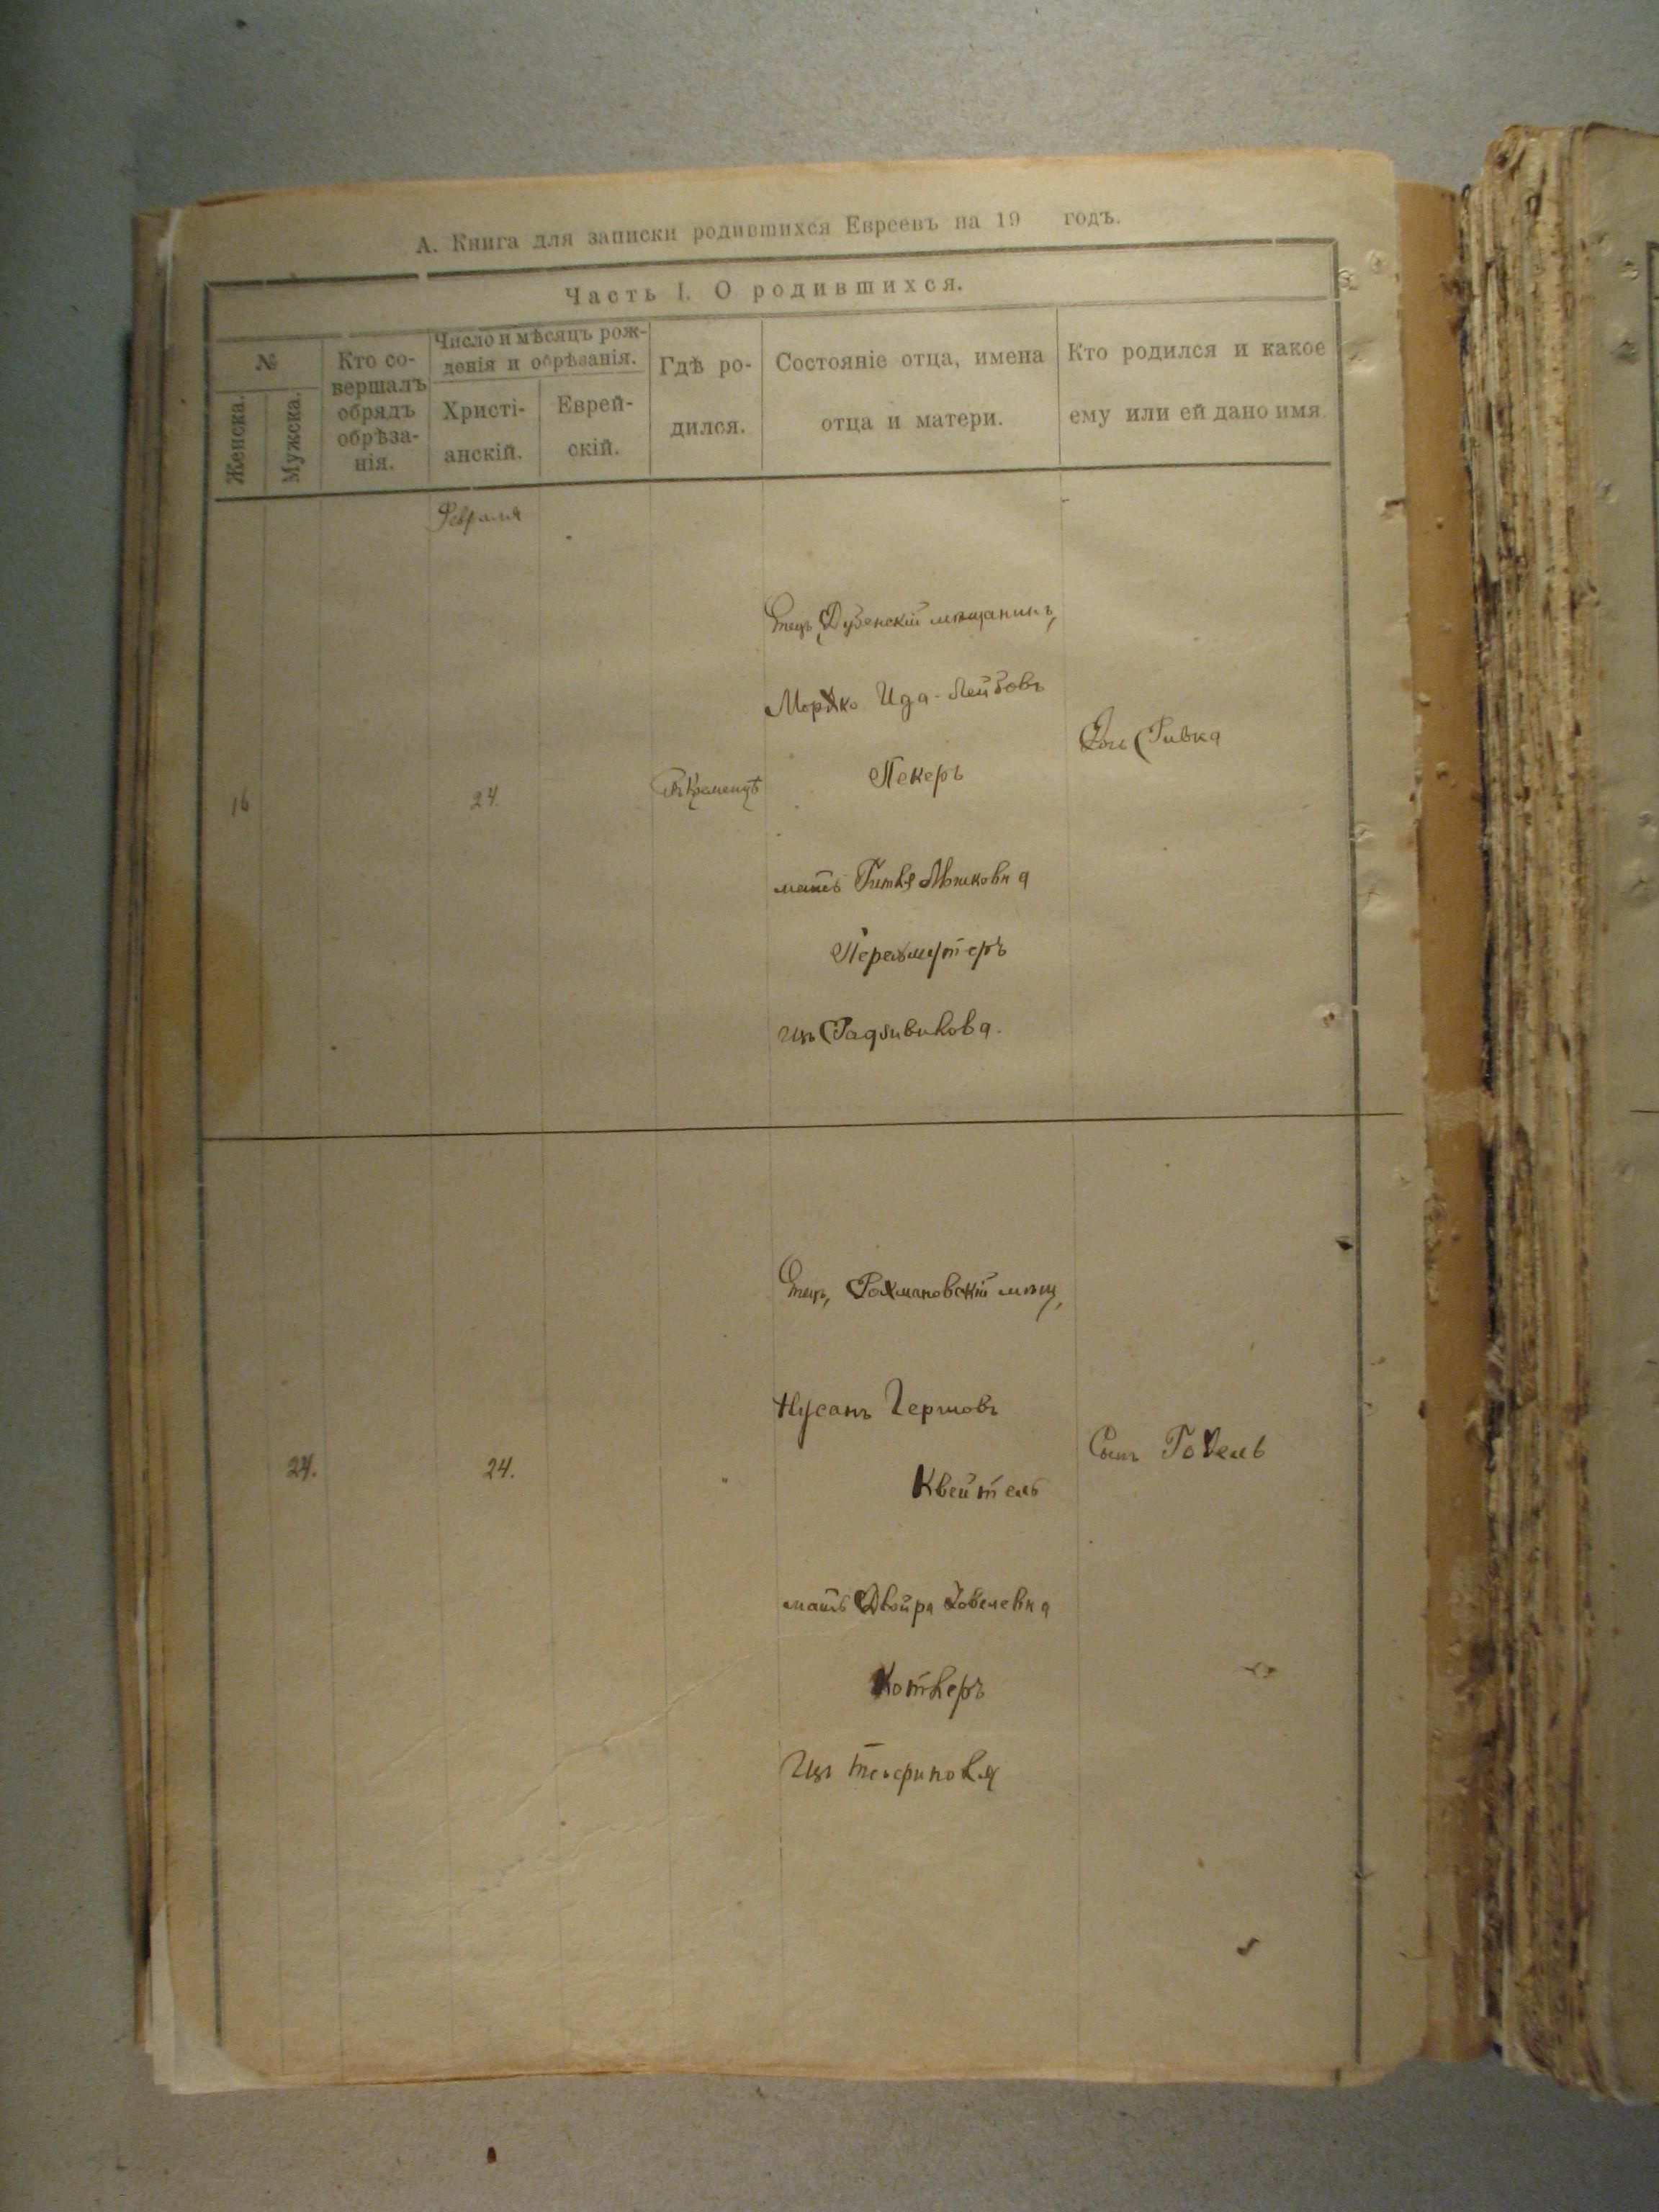 А. Книга для записки родившихся Евреевъ на 19 годъ.
Часть I. О родившихся.
№
Женска.
Мужска.
Кто со-
вершалъ
обрядъ
обрѣза-
нія.
Число и мѣсяцъ рож-
денія и обрѣзанія.
Христі-
анскій.
Еврей-
скій.
Гдѣ ро-
дился.
Состояніе отца, имена
отца и матери.
Кто родился и какое
ему или ей дано имя.
Февраля
16
24.
Кременцѣ
Отецъ, Дубенскій мѣщанинъ,
Мордко Ида-Лейбовъ
Пекеръ
мать Гитля
Перельмутеръ
изъ Радзивилова.
Дочь Ривка
24.
24.
"
Отецъ, Рохмановскій мѣщ,
Нусанъ Гершовъ
Квейтель
мать Двойра
Котлеръ
Изъ
Сынъ Годель